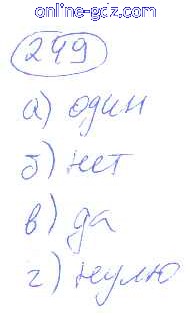 online-gdz.com
249
а) один
б) нет
в) да
г) нулю